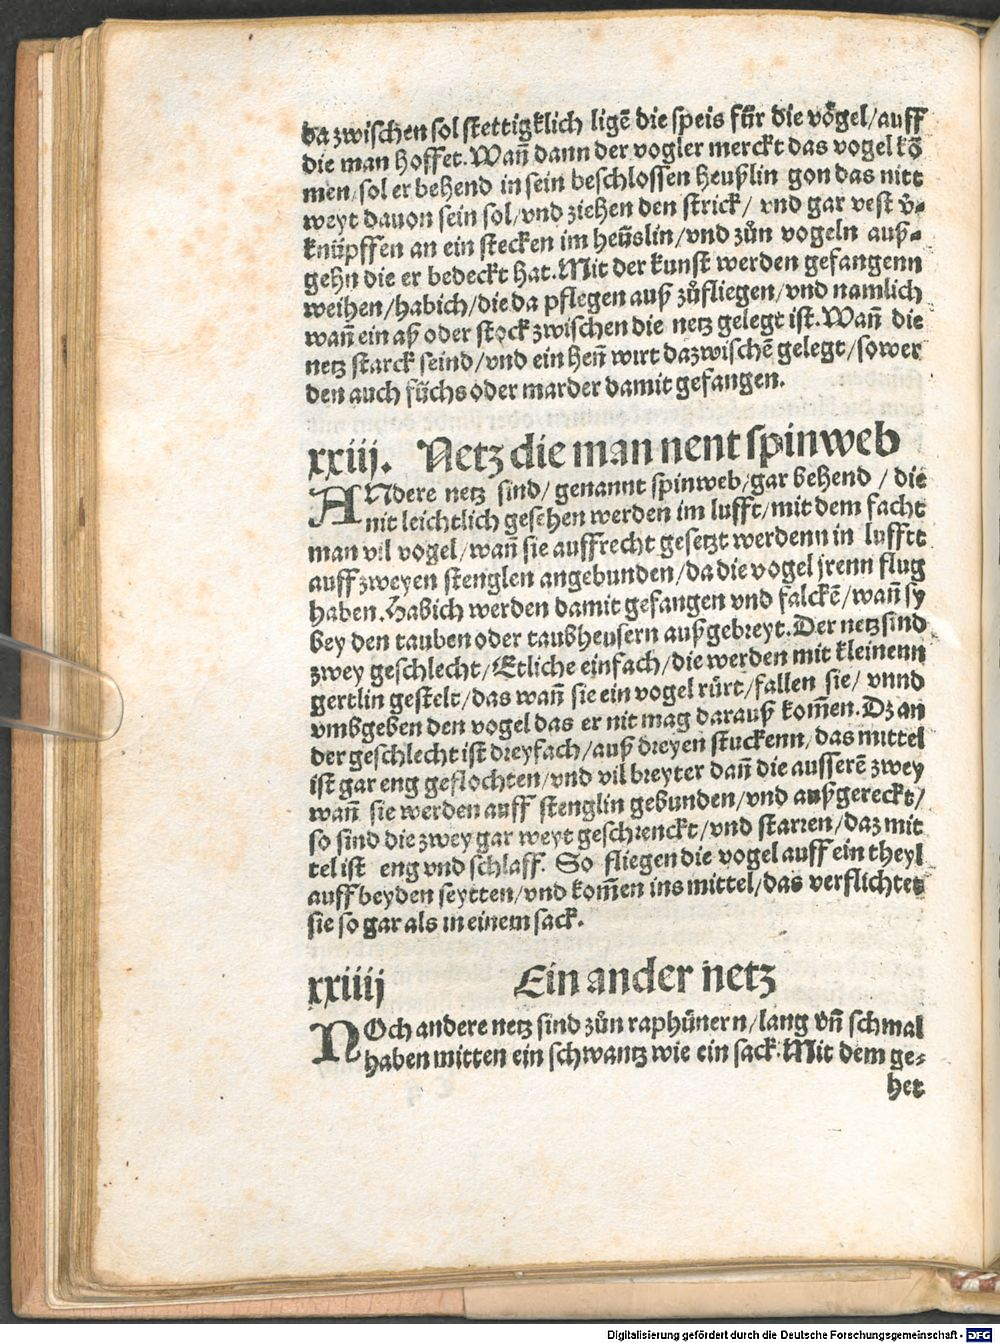 da zwischen sol stettigklich ligẽ die speis für die vögel/auff
die man hoffet. Wañ dann der vogler merckt das vogel kõ
men/sol er behend in sein beschlossen heußlin gon das nitt
weyt dauon sein sol/vnd ziehen den strick/ vnd gar vest v̾-
knüpffen an ein stecken im heüslin/vnd zůn vogeln auß-
gehn die er bedeckt hat. Mit der kunst werden gefangenn
weihen/habich/die da pflegen auß zůfliegen/vnd namlich
wañ ein aß oder stock zwischen die netz gelegt ist. Wañ die
netz starck seind/vnd ein heñ wirt dazwischẽ gelegt/so wer
den auch füchs oder marder damit gefangen.
xxiij. Netz die man nent spinweb
ANdere netz sind/ genannt spinweb/gar behend / die
nit leichtlich gesehen werden im lufft/mit dem facht
man vil vogel/wañ sie auffrecht gesetzt werdenn in lufftt
auff zweyen stenglen angebunden/da die vogel jrenn flug
haben. Habich werden damit gefangen vnd falckẽ/wañ sy
bey den tauben oder taubheusern außgebreyt. Der netz sind
zwey geschlecht/Etliche einfach/die werden mit kleinenn
gertlin gestelt/das wañ sie ein vogel rürt/fallen sie/ vnnd
vmbgeben den vogel das er nit mag darauß kom̃en. Dz an
der geschlecht ist dreyfach/auß dreyen stuckenn/das mittel
ist gar eng geflochten/vnd vil breyter dañ die ausserẽ zwey
wañ sie werden auff stenglin gebunden/vnd außgereckt/
so sind die zwey gar weyt geschrenckt/vnd starren/daz mit
tel ist eng vnd schlaff. So fliegen die vogel auff ein theyl
auff beyden seytten/vnd kom̃en ins mittel/das verflichtet
sie so gar als in einem sack.
xxiiij Ein ander netz
NOch andere netz sind zůn raphünern/lang vñ schmal
haben mitten ein schwantz wie ein sack. Mit dem ge-
het
Digitalisierung gefördert durch die Deutsche Forschungsgemeinschaft - DFG